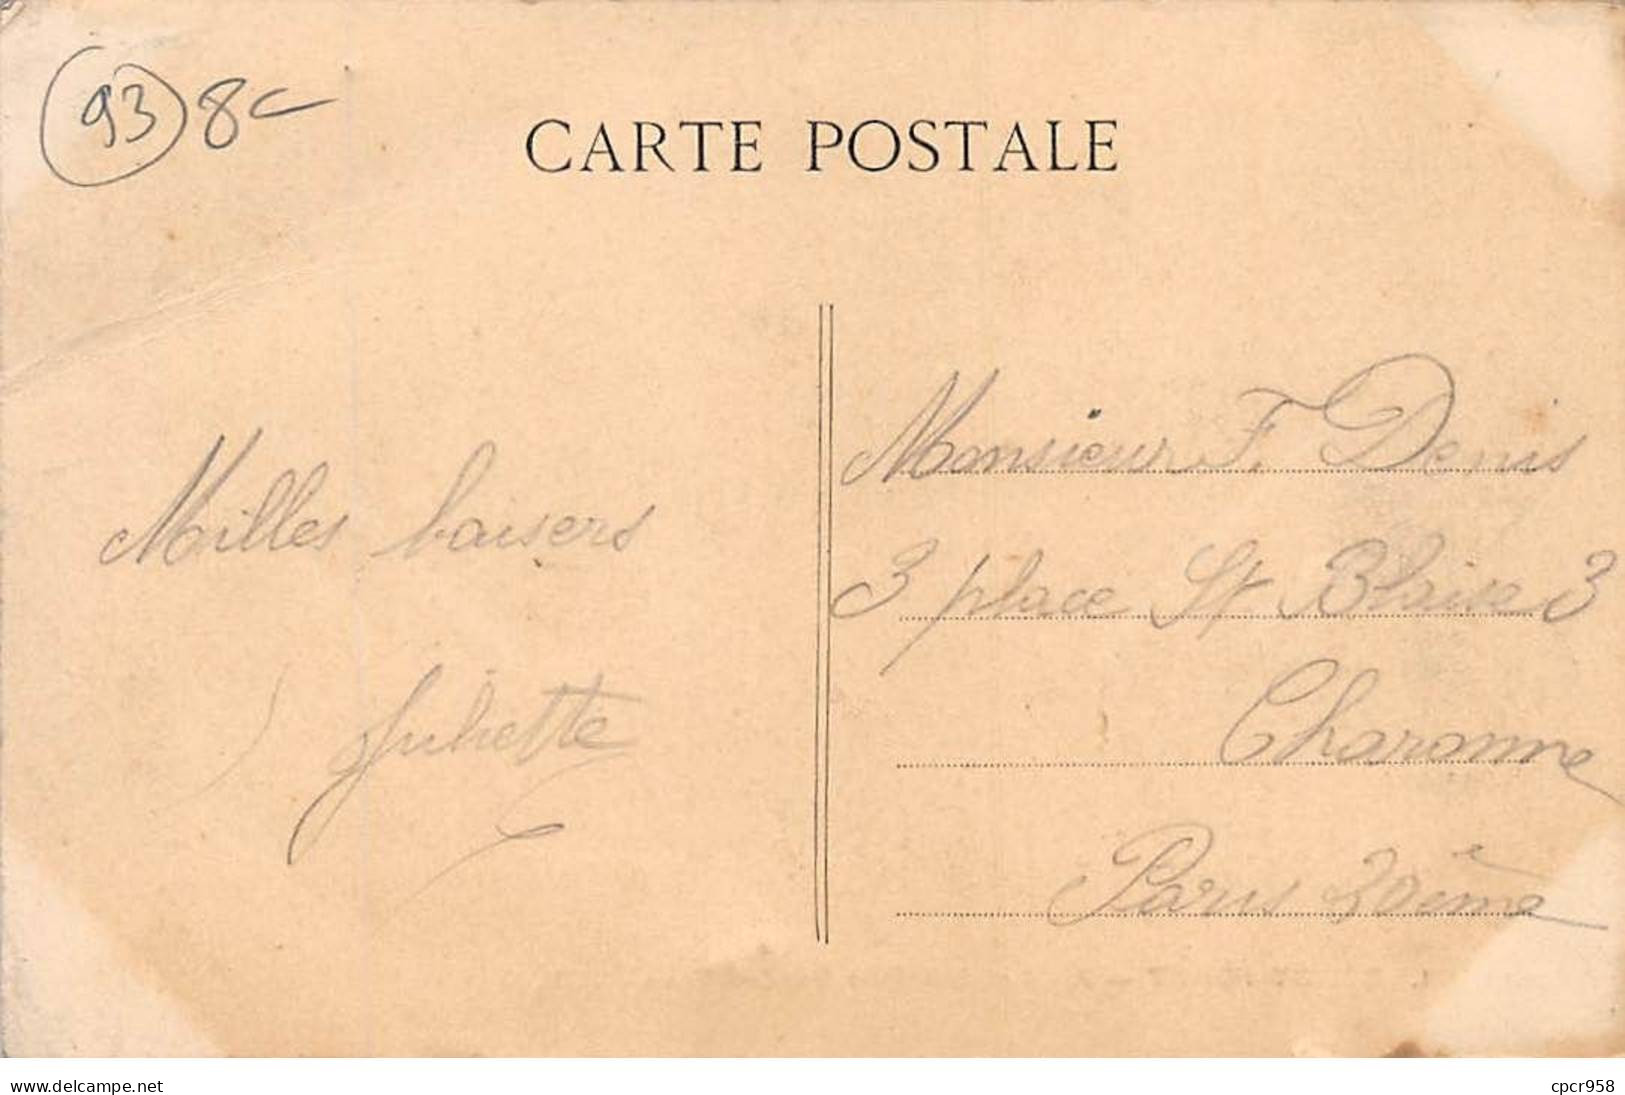 93 8
CARTE POSTALE
Milles baisers
Juliette
Monsieur F. Denis
3 place St Blaise 3
Charonne
Paris 20ème
www.delcampe.net
cpcr958